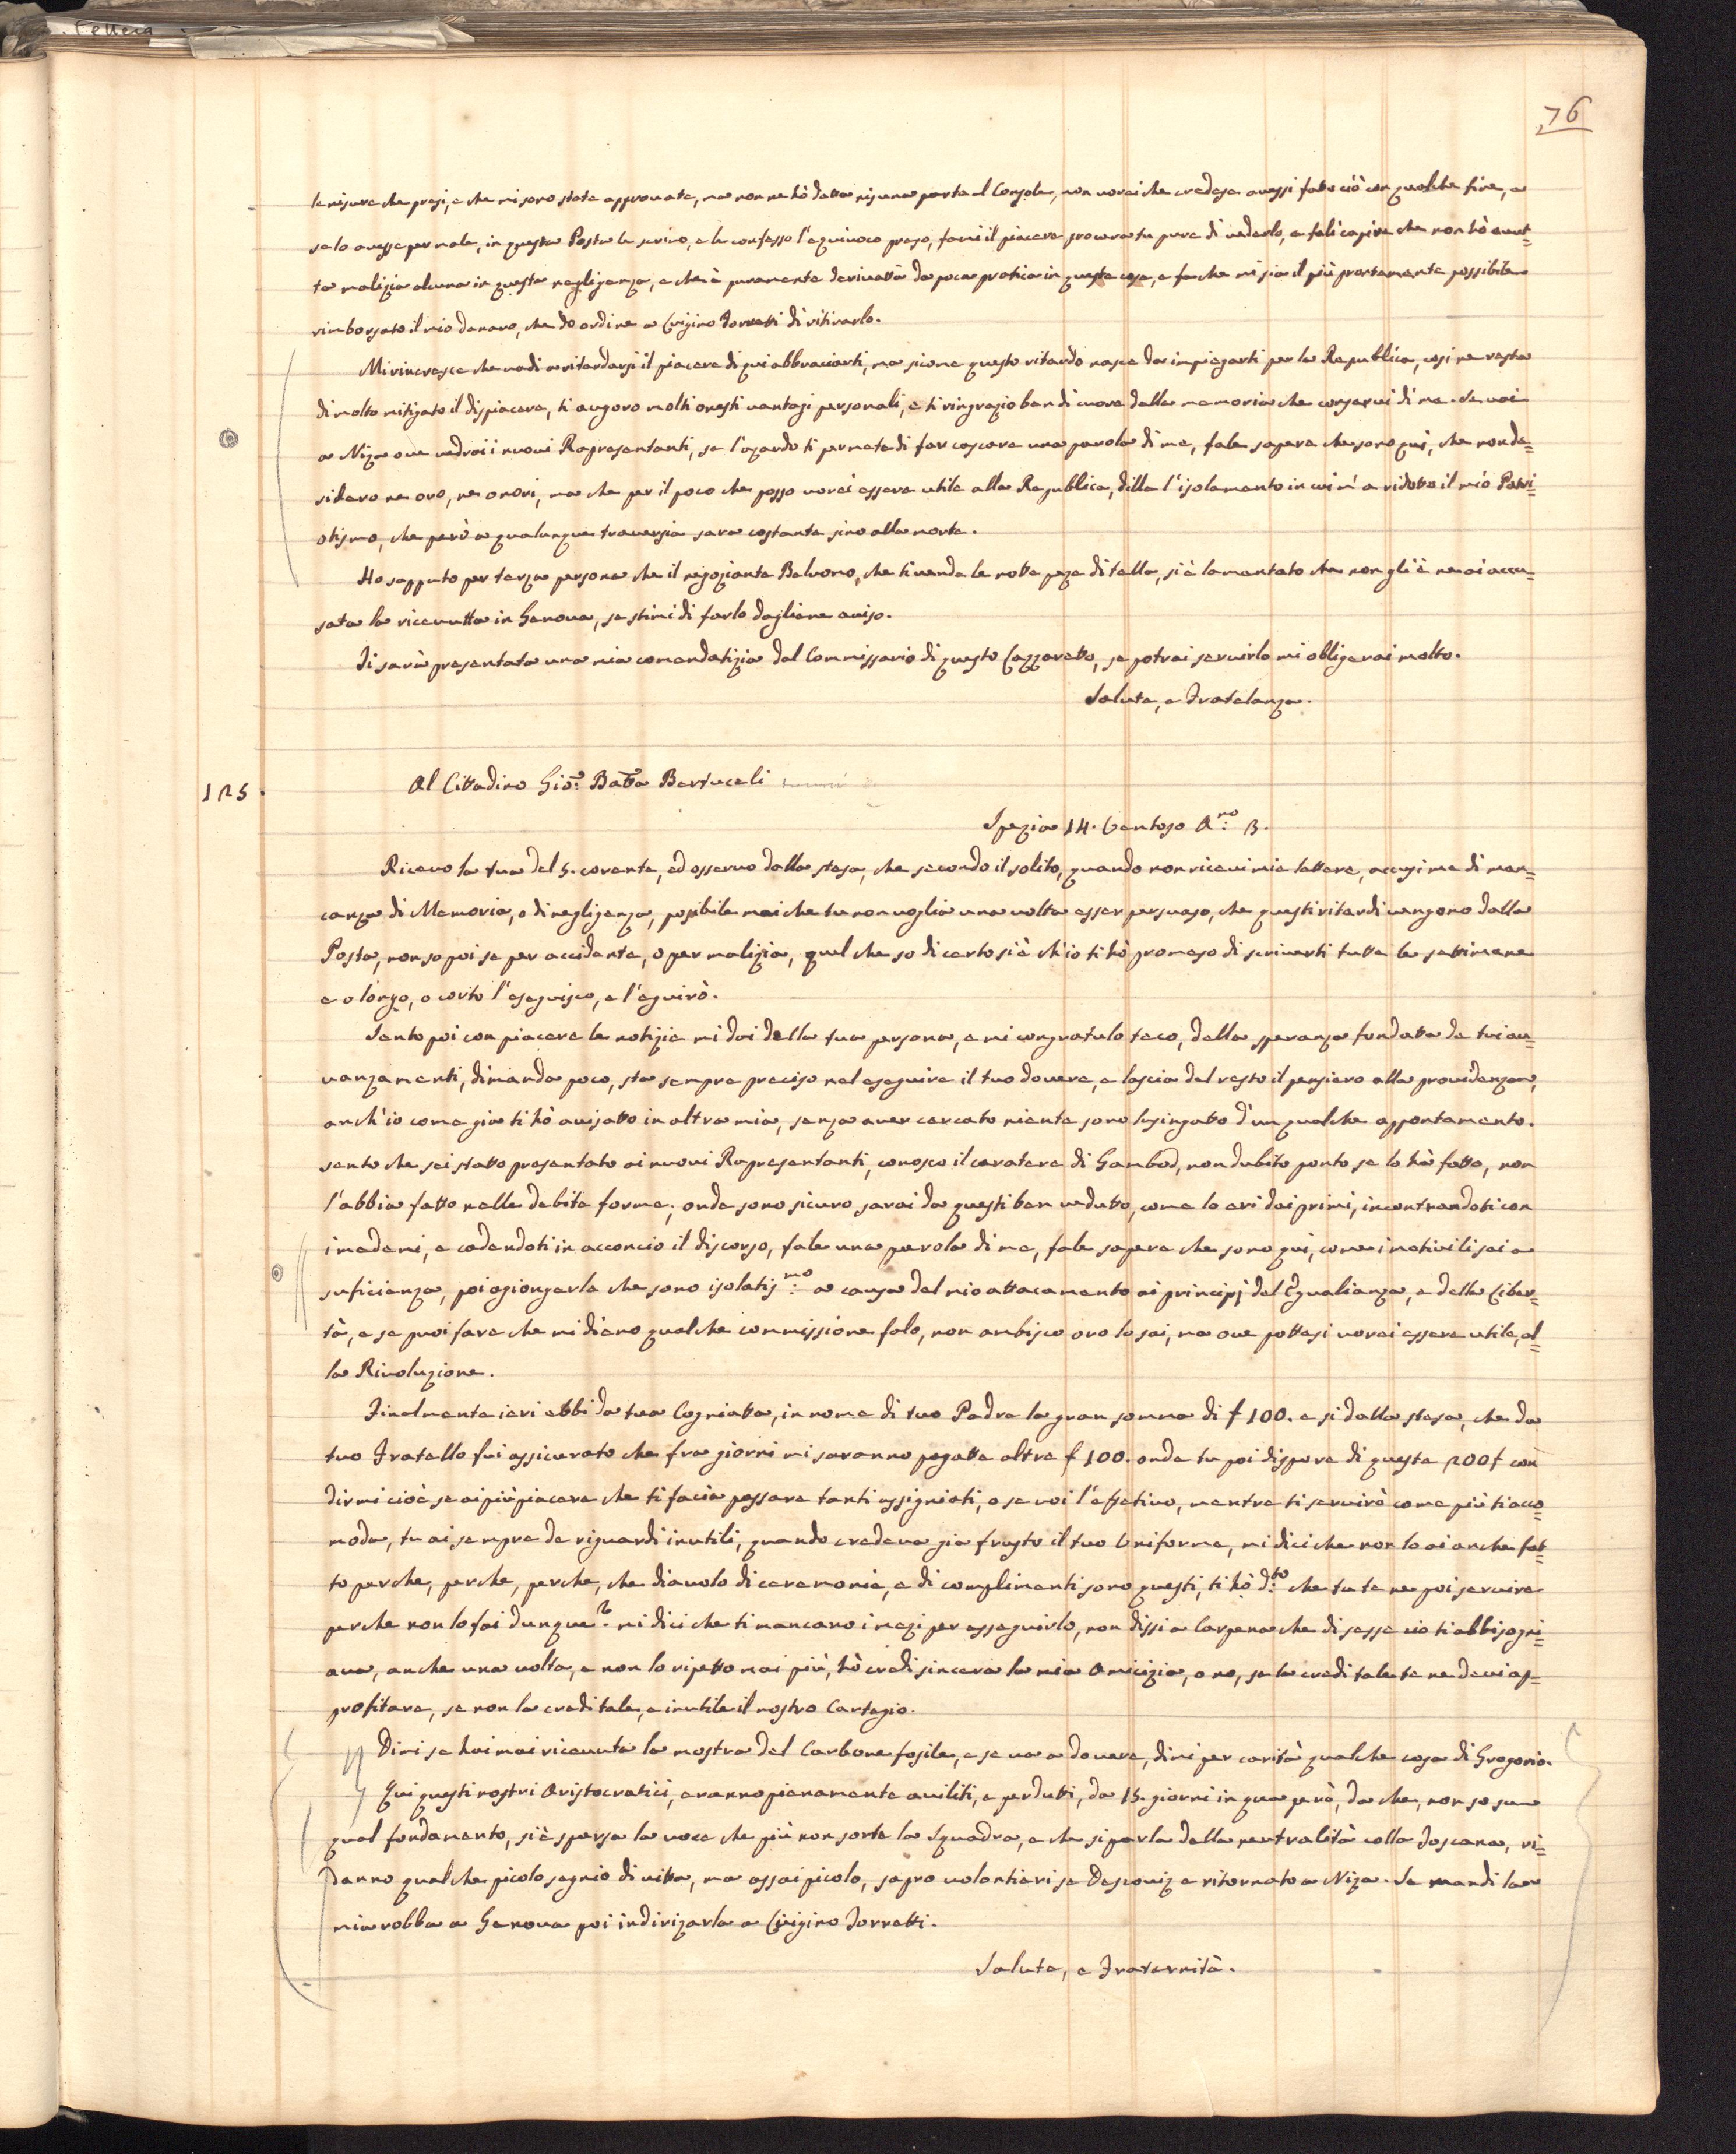 76
le misure che presi, e che mi sono state approuate, ma non ne hò datta nisuna parte al Console, non uorei che credese auessi fatto ciò con qualche fine, e
se lo auesse per male, in questa Posta le scriuo, e le confesso l'equiuoco preso, fami il piacere procura tu pure di uederlo, e fali capire che non hò auut=
ta malizia alcuna in questa negligenza, e che è puramente deriuatta da poca pratica in queste cose, e fa che mi sia il più prontamente possibile
rimborsato il mio danaro, che do ordine a Luigino Torretti di ritirarlo.
Mi rincresce che uadi a ritardarsi il piacere di qui abbracciarti, ma sicome questo ritardo nasce da impiegarti per la Republica, cosi ne resta
di molto mitigato il dispiacere, ti auguro molti onesti uantagi personali, e ti ringrazio ben di cuore della memoria che conserui di me. Se uai
a Niza oue uedrai i nuoui Rapresentanti, se l'azardo ti permete di far cascare una parola di me, fale sapere che sono qui, che non de=
sidero ne oro, ne onori, ma che per il poco che posso uorei essere utile alla Republica, dille l'isolamento in cui m'a ridotto il mio Patri=
otismo, che però a qualunque trauersia sara costante sino alla morte.
Ho sapputo per terza persona che il negoziante Baluomo, che ti uende le notte peze di tella, si è lamentato che non gli è ne ai accu=
sata la riceuutta in Genoua, se stimi di farlo dagliene auiso.
Ti sarà presentata una mia comendatizia dal Commissario di questo Lazzaretto, se potrai seruirlo mi obligerai molto.
Salute, e Fratelanza.
125.
Al Cittadino Gio: Batta Bertuceli
Spezia 14. Ventoso Anno 3.
Riceuo la tua del 5. corente, ed osseruo dalla stesa, che secondo il solito, quando non riceui mie lettere, accusi me di man=
canza di Memoria, o di negligenza, posibile mai che tu non uoglia una uolta esser persuaso, che questi ritardi uengono dalla
Posta, non so poi se per accidente, o per malizia, quel che so di certo si è ch'io ti hò promeso di scriuerti tutte le settimane
e o longo, o corto l'eseguisco, e l'eguirò.
Sento poi con piacere le notizie mi dai della tua persona, e mi congratulo teco, della speranza fondatta de tuoi au=
uanzamenti, dimanda poco, sta sempre preciso nel eseguire il tuo douere, e lascia del resto il pensiero alla prouidenza,
anch'io come gia ti hò auisatto in altra mia, senza auer cercato niente sono lusingatto d'un qualche appontamento.
sento che sei statto presentato ai nuoui Rapresentanti, conosco il caratere di Gambod, non dubito ponto se lo hà fatto, non
l'abbia fatto nelle debite forme, onde sono sicuro sarai da questi ben uedutto, come lo eri dai primi, incontrandoti con
i medemi, e cadendoti in acconcio il discorso, fale una parola di me, fale sapere che sono qui, come i motiui li sai a
suficienza, poi agiongerle che sono isolatismo a causa del mio attacamento ai principj del Egualianza, e della Liber=
tà, e se puoi fare che mi diano qualche commissione falo, non ambisco oro lo sai, ma oue pottesi uorei essere utile al=
la Riuoluzione.
Finalmente ieri ebbi da tua Cogniatta, in nome di tuo Padre la gran somma di f 100. e si dalla stesa, che da
tuo Fratello fui assicurato che fra giorni mi saranno pagatte altre f 100. onde tu poi dispore di queste 200 f con
dirmi cioè se ai più piacere che ti facia passare tanti assigniati, o se uoi l'effetiuo, mentre ti seruirò come più ti acco=
moda, tu ai sempre de riguardi inutili, quando credeua gia frusto il tuo Uniforme, mi dici che non lo ai anche fat=
to perche, perche, perche, che diauolo di ceremonie, e di complimenti sono questi, ti hò dto che tu te ne poi seruire
perche non lo fai dunque? mi dici che ti mancano i mezi per esseguirlo, non dissi a Carpena che di sesse cio ti abbisogni=
aua, anche una uolta, e non lo ripetto mai più, hò credi sincera la mia Amicizia, o no, se la credi tale te ne deui ap=
profitare, se non la credi tale, e inutile il nostro Cartegio.
Dimi se hai mai riceuuta la mostra del Carbone fosile, e se ua a douere, dimi per carità qualche cosa di Grogorio.
Qui questi nostri Aristocratici, eranno pienamente auiliti, e perdutti, da 15. giorni in qua però, da che, non so su
qual fondamento, si è sparsa la uoce che più non sorte la Squadra, e che si parla della neutralità colla Toscana, ri=
danno qualche picolo segnio di uitta, ma assai picolo, sapro uolentieri se Descouiz e ritornato a Niza. Se mandi la
mia robba a Genoua poi indirizarla a Luigino Torretti.
Salute, e Fraternità.